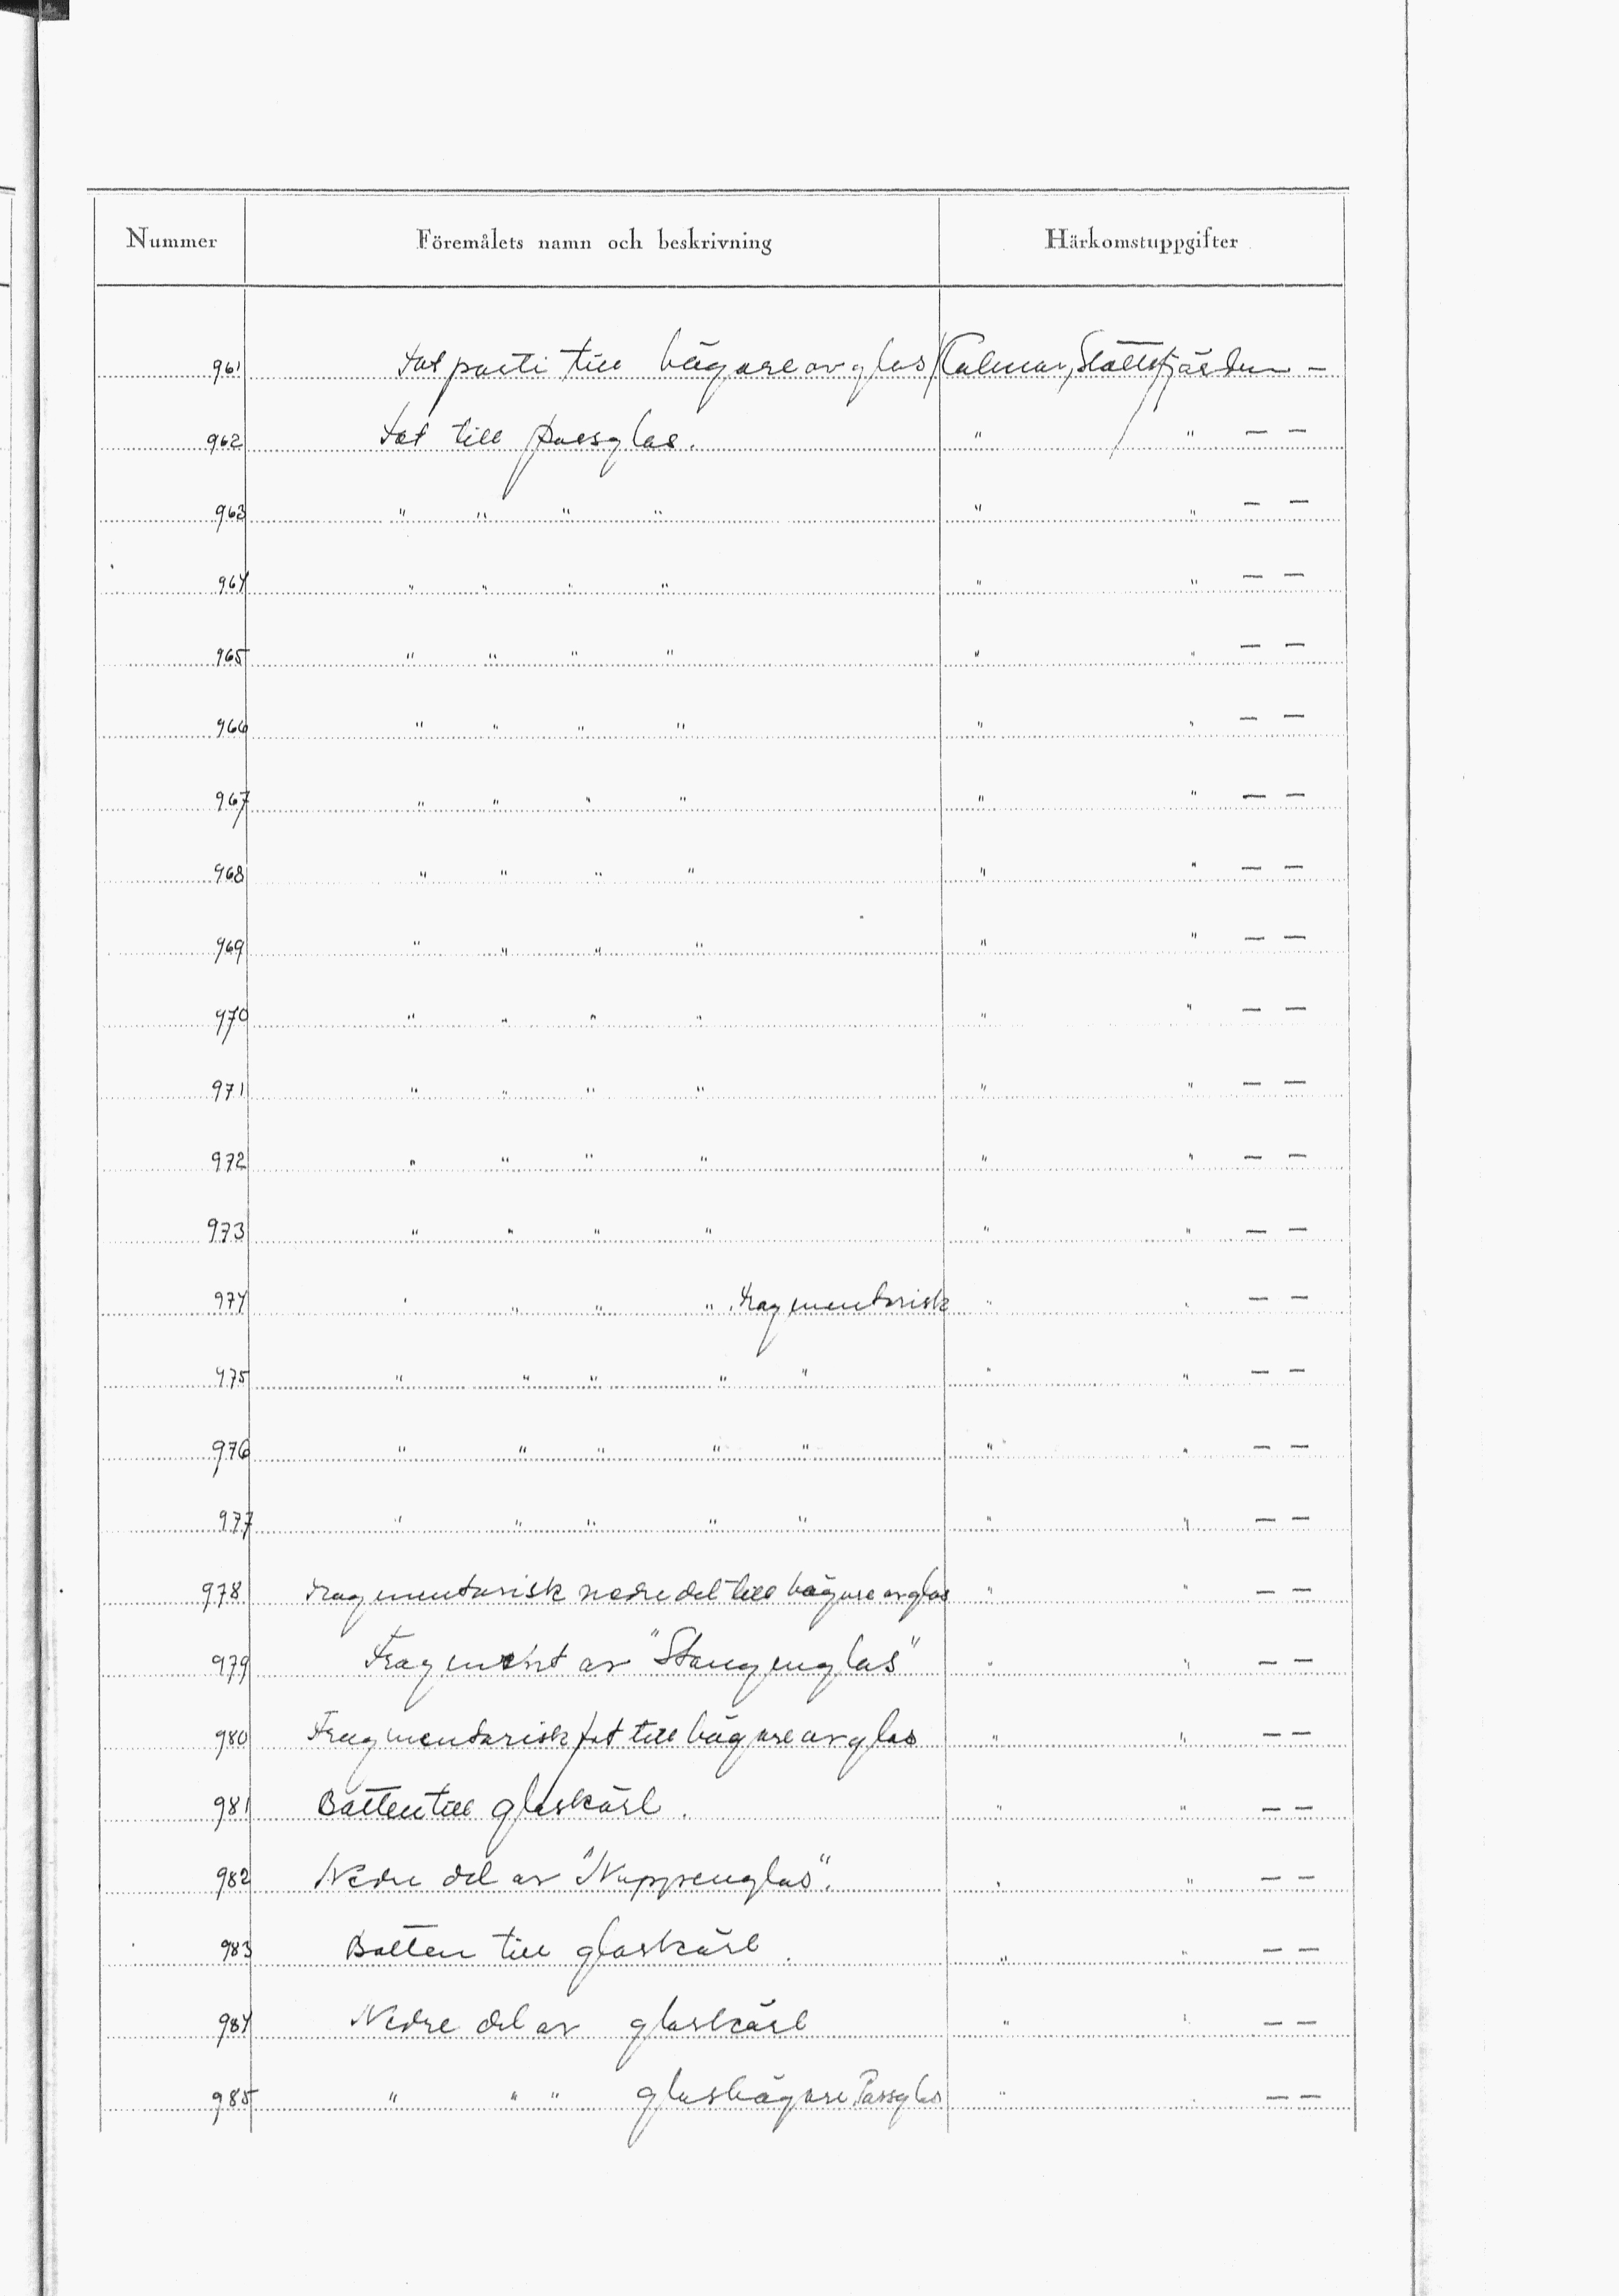 Nummer Föremålets namn och beskrivning Härkomstuppgifter
961 Fotparti till bägare av glas Kalmar, Slottsfjärden –
962 Fot till passglas. " " — —
963 " " " " " " — —
964 " " " " " " — —
965 " " " " " " — —
966 " " " " " " — —
967 " " " " " " — —
968 " " " " " " — —
969 " " " " " " — —
970 " " " " " " — —
971 " " " " " " — —
972 " " " " " " — —
973 " " " " " " — —
974 " " " " fragmentarisk " " — —
975 " " " " " " " — —
976 " " " " " " " — —
977 " " " " " " " — —
978 Fragmentarisk nedre del till bägare av glas " " — —
979 Fragment av "Stangenglas" " " — —
980 Fragmentarisk fot till bägare av glas " " — —
981 Botten till glaskärl. " " — —
982 Nedre del av "Nuppenglas". " " — —
983 Botten till glaskärl. " " — —
984 Nedre del av glaskärl " " — —
985 " " " glasbägare. Passglas " " — —